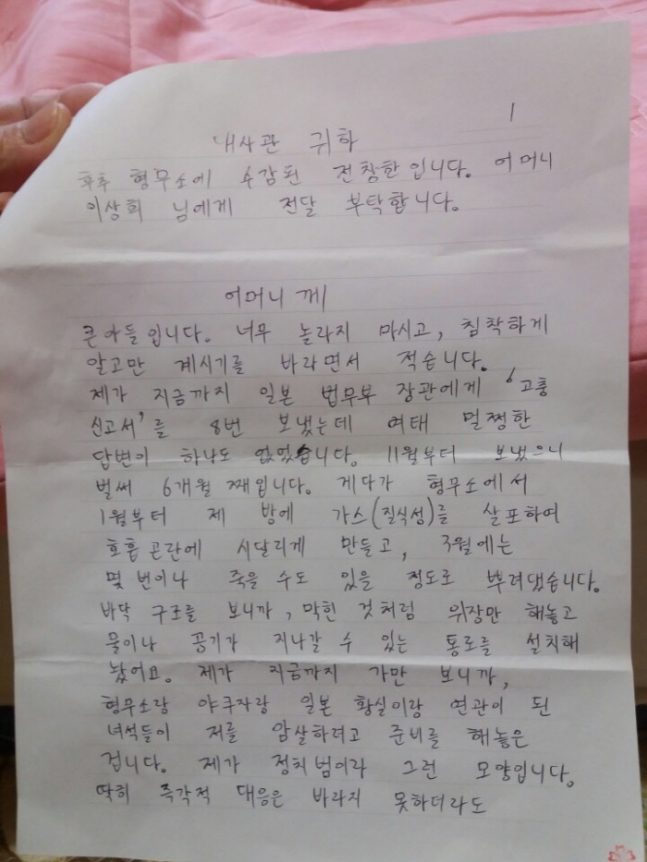 1
대사관 귀하
후추 형무소에 수감된 전창한입니다. 어머니
이상희 님에게 전달 부탁합니다.
어머니께
큰아들입니다. 너무 놀라지 마시고, 침착하게
알고만 계시기를 바라면서 적습니다.
제가 지금까지 일본 법무부 장관에게 '고통
신고서'를 8번 보냈는데 여태 멀쩡한
답변이 하나도 없었습니다. 11월부터 보냈으니
벌써 6개월 째입니다. 게다가 형무소에서
1월부터 제 방에 가스(질식성)를 살포하여
호흡 곤란에 시달리게 만들고, 3월에는
몇 번이나 죽을 수도 있을 정도로 뿌려댔습니다.
바닥 구조를 보니까, 막힌 것처럼 위장만 해놓고
물이나 공기가 지나갈 수 있는 통로를 설치해
놨어요. 제가 지금까지 가만 보니까,
형무소랑 야쿠자랑 일본 황실이랑 연관이 된
녀석들이 저를 암살하려고 준비를 해놓은
겁니다. 제가 정치범이라 그런 모양입니다.
딱히 즉각적 대응은 바라지 못하더라도